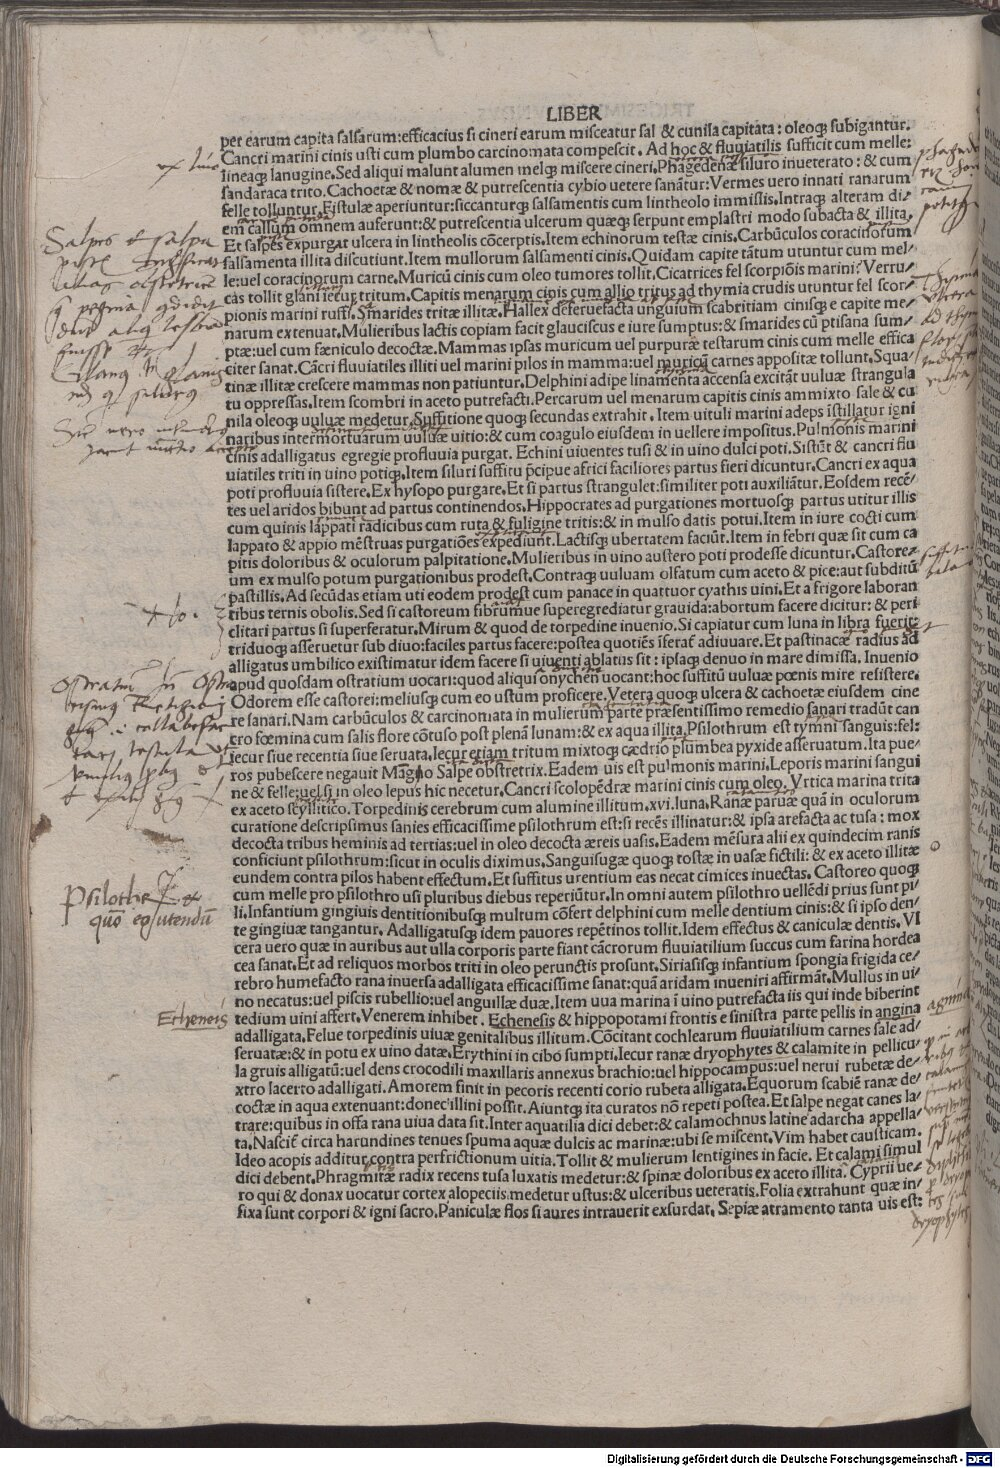 LIBER
per earum capita salsarum:efficacius si cineri earum misceatur sal & cunila capitata: oleoq; subigantur.
Cancri marini cinis usti cum plumbo carcinomata compescit. Ad hoc & fluuiatilis sufficit cum melle:
lineaq; lanugine. Sed aliqui malunt alumen melq; miscere cineri. Phagedenæ siluro inueterato: & cum
sandaraca trito. Cachoetæ & nomæ & putrescentia cybio uetere sanãtur: Vermes uero innati ranarum
felle tolluntur. Fistulæ aperiuntur: siccanturq; salsamentis cum lintheolo immissis. Intraq; alteram di-
em callum omnem auferunt: & putrescentia ulcerum quæq; serpunt emplastri modo subacta & illita.
Et salpes expurgat ulcera in lintheolis cõcerptis. Item echinorum testæ cinis. Carbũculos coracinorum
salsamenta illita discutiunt. Item mullorum salsamenti cinis. Quidam capite tãtum utuntur cum mel-
le: uel coracinorum carne. Muricũ cinis cum oleo tumores tollit. Cicatrices fel scorpiõis marini: Verru-
cas tollit glani iecur tritum. Capitis menarum cinis cum allio tritus ad thymia crudis utuntur fel scor-
pionis marini ruffi. Smarides tritæ illitæ. Hallex deferuefacta unguium scabritiam cinisq; e capite me-
narum extenuat. Mulieribus lactis copiam facit glauciscus e iure sumptus: & smarides cũ ptisana sum-
ptæ: uel cum fæniculo decoctæ. Mammas ipsas muricum uel purpuræ testarum cinis cum melle effica
citer sanat. Cãcri fluuiatiles illiti uel marini pilos in mamma: uel muricũ carnes appositæ tollunt. Squa-
tinæ illitæ crescere mammas non patiuntur. Delphini adipe linamenta accensa excitãt uuluæ strangula
tu oppressas. Item scombri in aceto putrefacti. Percarum uel menarum capitis cinis ammixto sale & cu
nila oleoq; uuluæ medetur. Suffitione quoq; secundas extrahit. Item uituli marini adeps istillatur igni
naribus intermortuarum uuluæ uitio: & cum coagulo eiusdem in uellere impositus. Pulmonis marini
cinis adalligatus egregie profluuia purgat. Echini uiuentes tusi & in uino dulci poti. Sistũt & cancri flu
uiatiles triti in uino potiq;. Item siluri suffitu p̄cipue africi faciliores partus fieri dicuntur. Cancri ex aqua
poti profluuia sistere. Ex hysopo purgare. Et si partus strangulet: similiter poti auxiliãtur. Eosdem recẽ-
tes uel aridos bibunt ad partus continendos. Hippocrates ad purgationes mortuosq; partus utitur illis
cum quinis lappati radicibus cum ruta & fuligine tritis: & in mulso datis potui. Item in iure cocti cum
lappato & appio mẽstruas purgatiões expediunt. Lactisq; ubertatem faciũt. Item in febri quæ sit cum ca
pitis doloribus & oculorum palpitatione. Mulieribus in uino austero poti prodesse dicuntur. Castore-
um ex mulso potum purgationibus prodest. Contraq; uuluam olfatum cum aceto & pice: aut subditũ
pastillis. Ad secũdas etiam uti eodem prodest cum panace in quattuor cyathis uini. Et a frigore laboran
tibus ternis obolis. Sed si castoreum fibrumue superegrediatur grauida: abortum facere dicitur: & peri
clitari partus si superferatur. Mirum & quod de torpedine inuenio. Si capiatur cum luna in libra fuerit:
triduoq; asseruetur sub diuo: faciles partus facere: postea quotiẽs iferat̃ adiuuare. Et pastinacæ radius ad
alligatus umbilico existimatur idem facere si uiuenti ablatus sit: ipsaq; denuo in mare dimissa. Inuenio
apud quosdam ostratium uocari: quod aliqui onychen uocant: hoc suffitũ uuluæ pœnis mire resistere.
Odorem esse castorei: meliusq; cum eo ustum proficere. Vetera quoq; ulcera & cachoetæ eiusdem cine
re sanari. Nam carbũculos & carcinomata in mulierum parte præsentissimo remedio sanari tradũt can
cro fœmina cum salis flore cõtuso post plenã lunam: & ex aqua illita. Psilothrum est tymni sanguis: fel:
iecur siue recentia siue seruata. Iecur etiam tritum mixtoq; cædrio plumbea pyxide asseruatum. Ita pue-
ros pubescere negauit Magno Salpe obstretrix. Eadem uis est pulmonis marini. Leporis marini sangui
ne & felle: uel si in oleo lepus hic necetur. Cancri scolopẽdræ marini cinis cum oleo. Vrtica marina trita
ex aceto scyllitico. Torpedinis cerebrum cum alumine illitum. xvi. luna. Ranæ paruæ quã in oculorum
curatione descripsimus sanies efficacissime psilothrum est: si recẽs illinatur: & ipsa arefacta ac tusa: mox
decocta tribus heminis ad tertias: uel in oleo decocta æreis uasis. Eadem mẽsura alii ex quindecim ranis
conficiunt psilothrum: sicut in oculis diximus. Sanguisugæ quoq; tostæ in uasæ fictili: & ex aceto illitæ
eundem contra pilos habent effectum. Et suffitus urentium eas necat cimices inuectas. Castoreo quoq;
cum melle pro psilothro usi pluribus diebus reperiũtur. In omni autem psilothro uellẽdi prius sunt pi-
li. Infantium gingiuis dentitionibusq; multum cõfert delphini cum melle dentium cinis: & si ipso den-
te gingiuæ tangantur. Adalligatusq; idem pauores repẽtinos tollit. Idem effectus & caniculæ dentis. VI
cera uero quæ in auribus aut ulla corporis parte fiant cãcrorum fluuiatilium succus cum farina hordea
cea sanat. Et ad reliquos morbos triti in oleo perunctis prosunt. Siriasisq; infantium spongia frigida ce-
rebro humefacto rana inuersa adalligata efficacissime sanat: quã aridam inueniri affirmãt. Mullus in ui-
no necatus: uel piscis rubellio: uel anguillæ duæ. Item uua marina ĩ uino putrefacta iis qui inde biberint
tedium uini affert. Venerem inhibet. Echenesis & hippopotami frontis e sinistra parte pellis in angina
adalligata. Felue torpedinis uiuæ genitalibus illitum. Cõcitant cochlearum fluuiatilium carnes sale ad-
seruatæ: & in potu ex uino datæ. Erythini in cibo sumpti. Iecur ranæ dryophytes & calamite in pellicu-
la gruis alligatũ: uel dens crocodili maxillaris annexus brachio: uel hippocampus: uel nerui rubetæ de-
xtro lacerto adalligati. Amorem finit in pecoris recenti corio rubeta alligata. Equorum scabiẽ ranæ de-
coctæ in aqua extenuant: donec illini possit. Aiuntq; ita curatos nõ repeti postea. Et salpe negat canes la-
trare: quibus in offa rana uiua data sit. Inter aquatilia dici debet: & calamochnus latine adarcha appella-
ta. Nascit̃ circa harundines tenues spuma aquæ dulcis ac marinæ: ubi se miscent. Vim habet causticam.
Ideo acopis additur contra perfrictionum uitia. Tollit & mulierum lentigines in facie. Et calami simul
dici debent. Phragmitæ radix recens tusa luxatis medetur: & spinæ doloribus ex aceto illita. Cyprii ue-
ro qui & donax uocatur cortex alopeciis medetur ustus: & ulceribus ueteratis. Folia extrahunt quæ in-
fixa sunt corpori & igni sacro. Paniculæ flos si aures intrauerit exsurdat. Sepiæ atramento tanta uis est:
Salpes & salpa
Psilothr
quõ eo utendũ
Echeneis
dryophytes
Digitalisierung gefördert durch die Deutsche Forschungsgemeinschaft - DFG